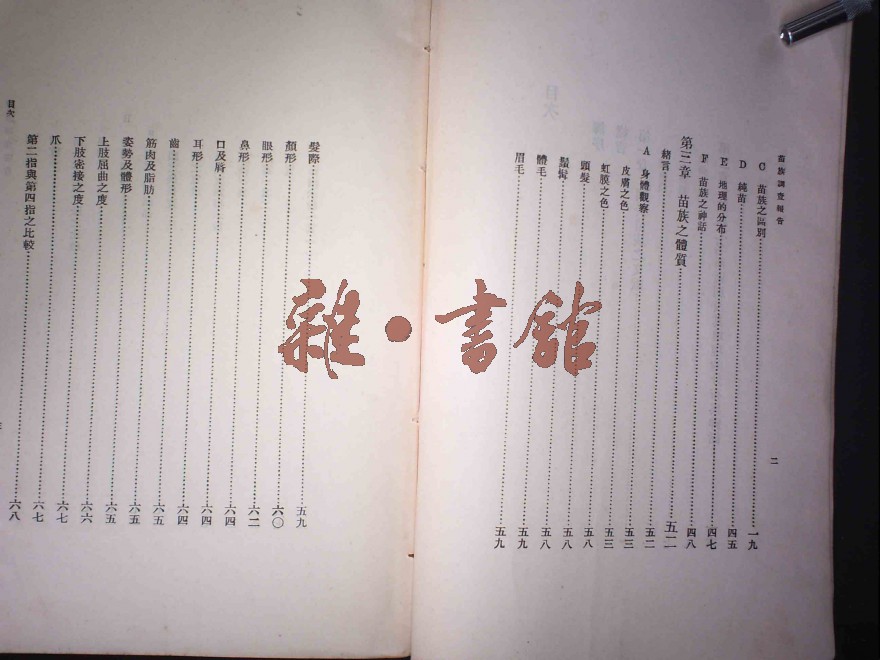 苗族調查報告
二
C 苗族之區別……一九
D 純苗……四五
E 地理的分布……四七
F 苗族之神話……四八
第三章 苗族之體質……五二
緒言……五二
A 身體觀察……五三
皮膚之色……五三
虹膜之色……五八
頭髮……五八
鬚髯……五八
體毛……五九
眉毛……五九
髮際……五九
顏形……六〇
眼形……六二
鼻形……六四
口及脣……六四
耳形……六四
齒……六五
筋肉及脂肪……六五
姿勢及體形……六五
上肢屈曲之度……六六
下肢密接之度……六七
爪……六七
第二指與第四指之比較……六八
目次
雜·書館